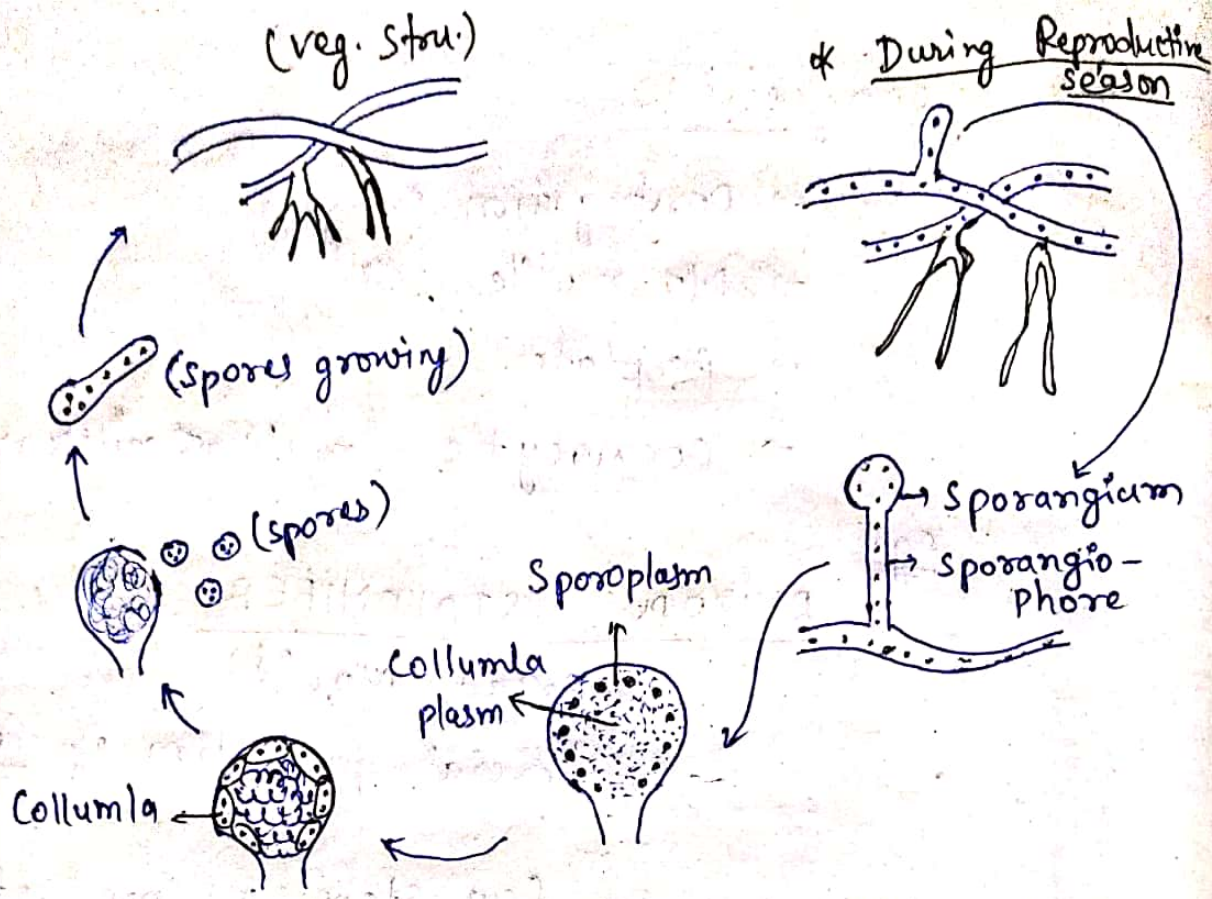 (veg. Stru.)
* During Reproductive
season
(spores growing)
(spores)
Sporangium
Sporangio-
Phore
Sporoplasm
Collumla
plasm
Collumla